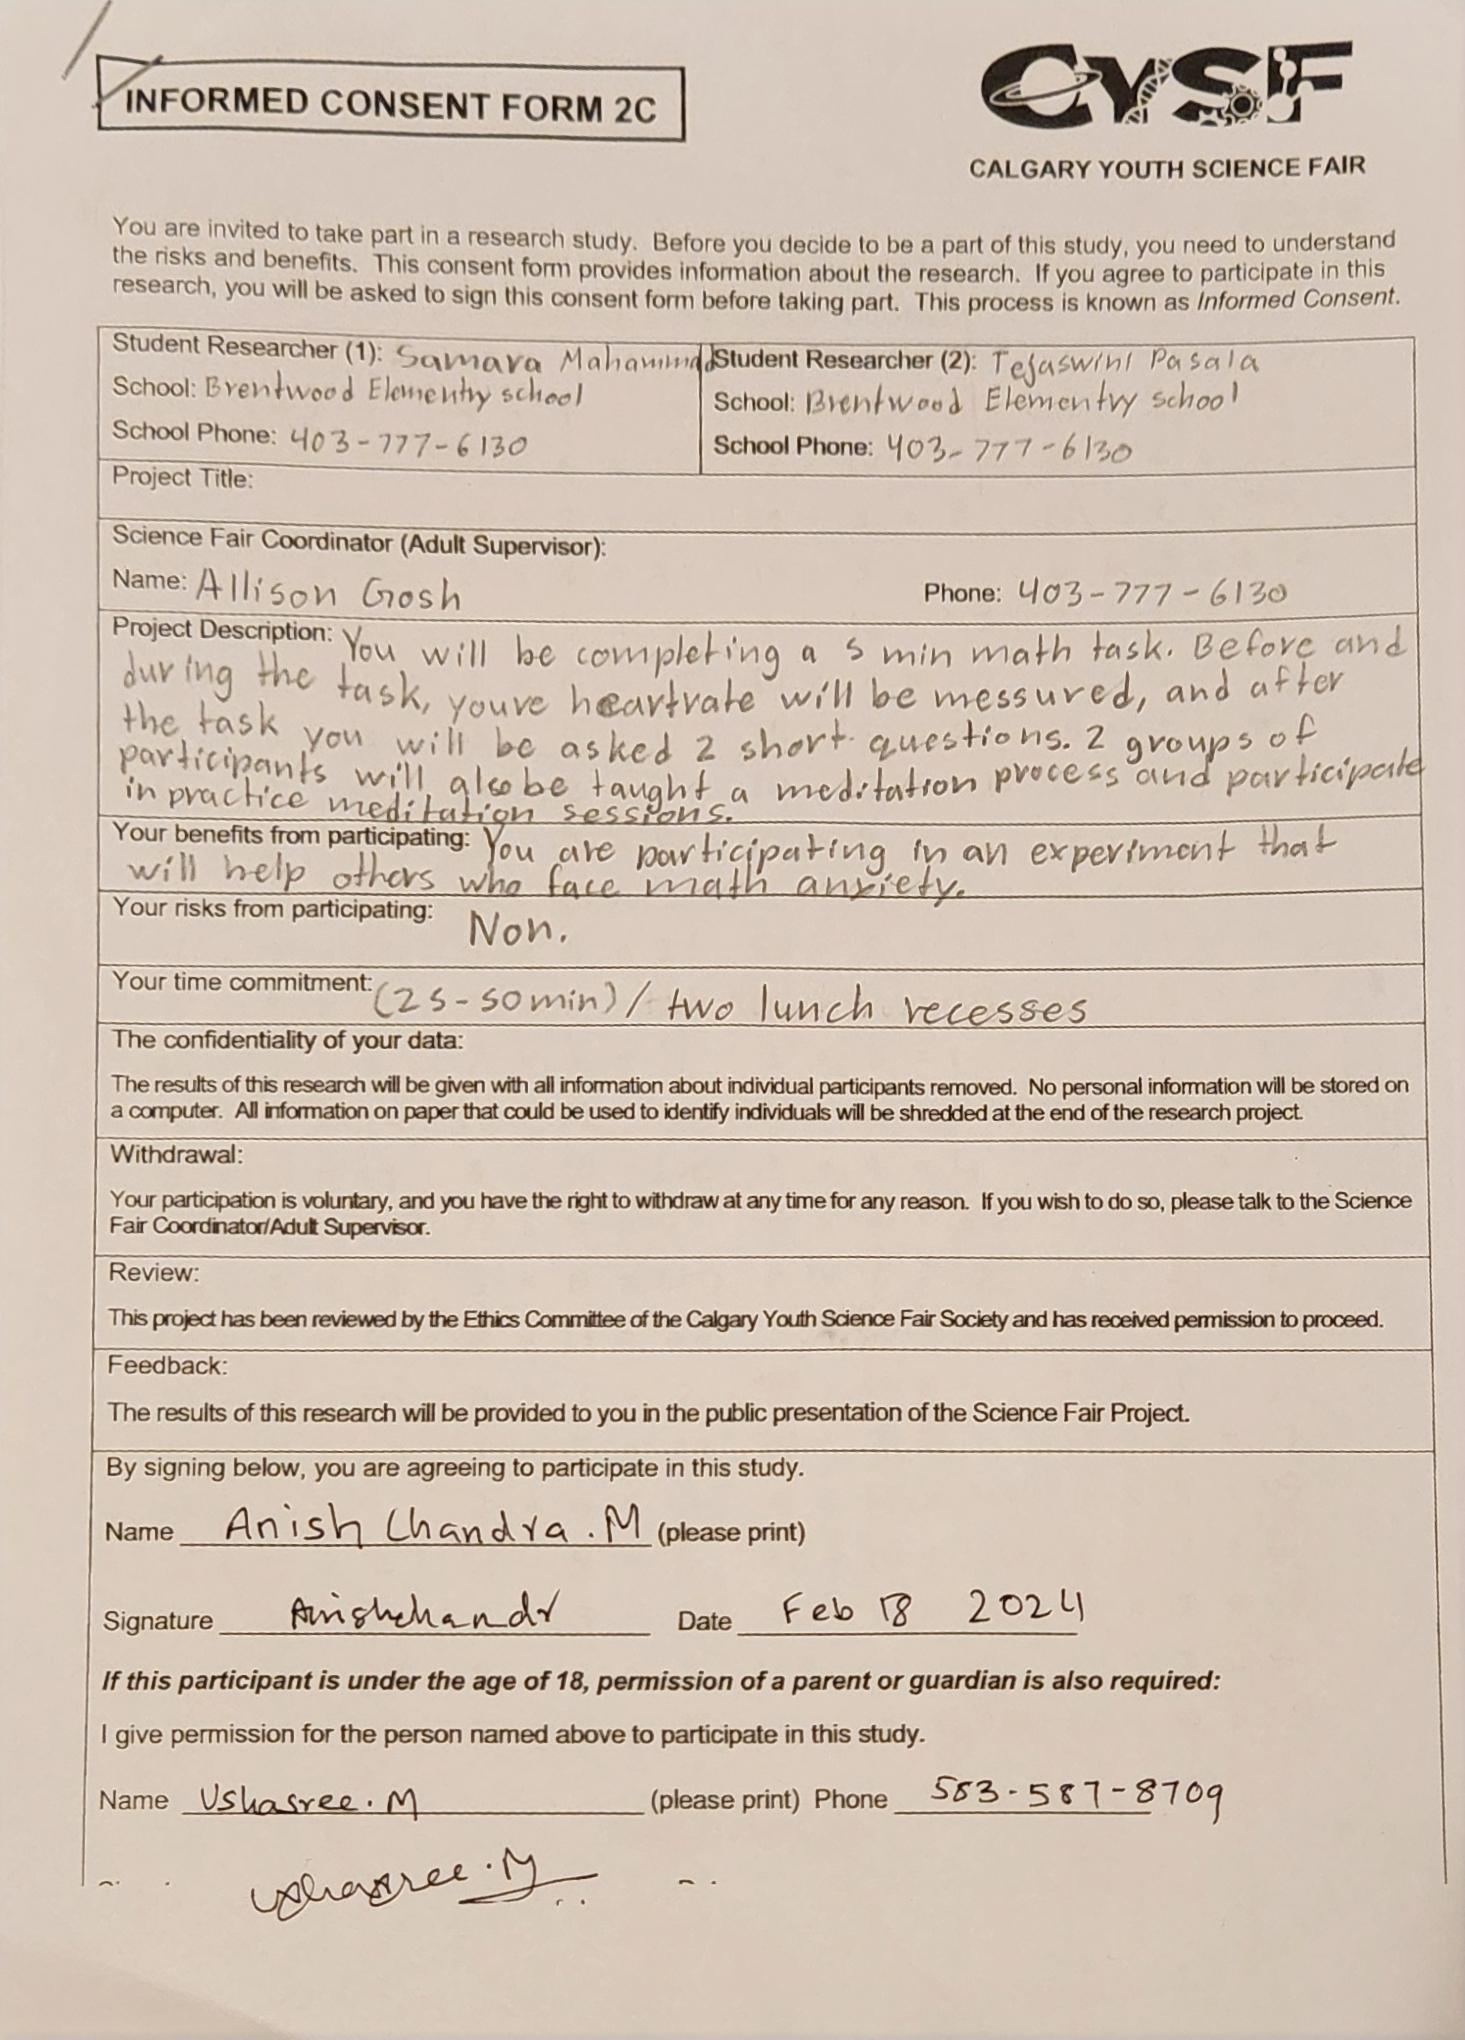 INFORMED CONSENT FORM 2C
CYSF
CALGARY YOUTH SCIENCE FAIR
You are invited to take part in a research study. Before you decide to be a part of this study, you need to understand
the risks and benefits. This consent form provides information about the research. If you agree to participate in this
research, you will be asked to sign this consent form before taking part. This process is known as Informed Consent.
Student Researcher (1): Samara Mahammad
School: Brentwood Elementry school
School Phone: 403-777-6130
Student Researcher (2): Tejaswini Pasala
School: Brentwood Elementry school
School Phone: 403-777-6130
Project Title:
Science Fair Coordinator (Adult Supervisor):
Name: Allison Gosh Phone: 403-777-6130
Project Description: You will be completing a 5 min math task. Before and
during the task, youre heartrate will be messured, and after
the task you will be asked 2 short questions. 2 groups of
participants will also be taught a meditation process and participate
in practice meditation sessions.
Your benefits from participating: You are participating in an experiment that
will help others who face math anxiety.
Your risks from participating: Non.
Your time commitment: (25-50min) / two lunch recesses
The confidentiality of your data:
The results of this research will be given with all information about individual participants removed. No personal information will be stored on
a computer. All information on paper that could be used to identify individuals will be shredded at the end of the research project.
Withdrawal:
Your participation is voluntary, and you have the right to withdraw at any time for any reason. If you wish to do so, please talk to the Science
Fair Coordinator/Adult Supervisor.
Review:
This project has been reviewed by the Ethics Committee of the Calgary Youth Science Fair Society and has received permission to proceed.
Feedback:
The results of this research will be provided to you in the public presentation of the Science Fair Project.
By signing below, you are agreeing to participate in this study.
Name Anish Chandra.M (please print)
Signature Anishchandr Date Feb 18 2024
If this participant is under the age of 18, permission of a parent or guardian is also required:
I give permission for the person named above to participate in this study.
Name Ushasree.M (please print) Phone 583-587-8709
Ushasree.M